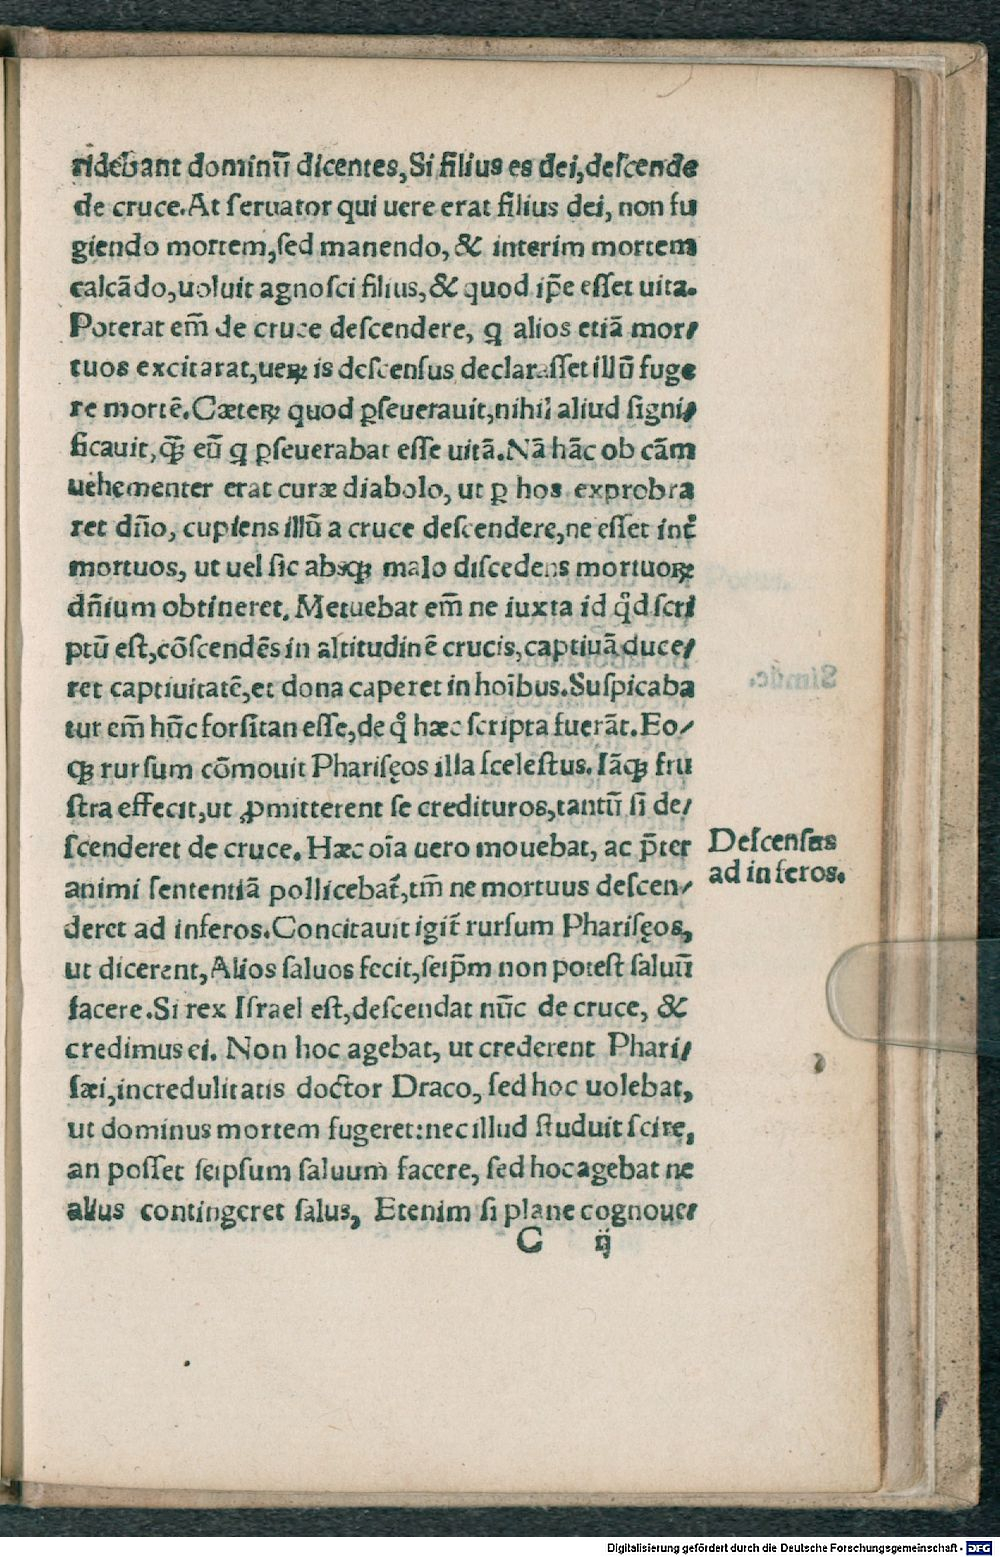 ridebant dominū dicentes, Si filius es dei, deſcende
de cruce. At ſeruator qui uere erat filius dei, non fu
giendo mortem, ſed manendo, & interim mortem
calcādo, uoluit agnoſci filius, & quod ip̄e eſſet uita.
Poterat em̄ de cruce deſcendere, q alios etiā mor⸗
tuos excitarat, ueꝝ is deſcenſus declaraſſet illū fuge
re mortē. Cæteꝝ quod ꝑſeuerauit, nihil aliud ſigni⸗
ficauit, q̄ꝫ eū q ꝑſeuerabat eſſe uitā. Nā hāc ob cām
uehementer erat curæ diabolo, ut ꝑ hos exprobra
ret dn̄o, cupiens illū a cruce deſcendere, ne eſſet int̄
mortuos, ut uel ſic abſqꝫ malo diſcedens mortuoꝝ
dn̄ium obtineret. Metuebat em̄ ne iuxta id qd̊ ſcri
ptū eſt, cōſcendēs in altitudinē crucis, captiuā duce⸗
ret captiuitatē, et dona caperet in hoībus. Suſpicaba
tur em̄ hūc forſitan eſſe, de q̊ hæc ſcripta fuerāt. Eo⸗
qꝫ rurſum cōmouit Phariſęos illa ſceleſtus. Iāqꝫ fru
ſtra effecit, ut ꝓmitterent ſe credituros, tantū ſi de⸗
ſcenderet de cruce. Hæc oīa uero mouebat, ac p̄ter
animi ſententiā pollicebat̄, tm̄ ne mortuus deſcen⸗
deret ad inferos. Concitauit igit̄ rurſum Phariſęos,
ut dicerent, Alios ſaluos fecit, ſeip̄m non poteſt ſaluū
facere. Si rex Iſrael eſt, deſcendat nūc de cruce, &
credimus ei. Non hoc agebat, ut crederent Phari⸗
ſæi, incredulitatis doctor Draco, ſed hoc uolebat,
ut dominus mortem fugeret: nec illud ſtuduit ſcire,
an poſſet ſeipſum ſaluum facere, ſed hoc agebat ne
alius contingeret ſalus, Etenim ſi plane cognoue⸗
C ij
Deſcenſus
ad inferos.
Digitalisierung gefördert durch die Deutsche Forschungsgemeinschaft - DFG